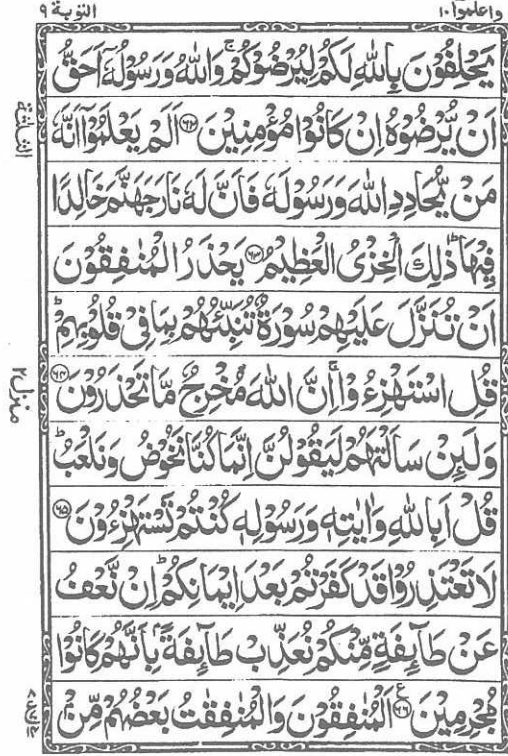 واعلموا ١٠
التوبة ٩
يَحْلِفُوْنَ بِاللّٰهِ لَكُمْ لِيُرْضُوْكُمْ ۚ وَاللّٰهُ وَرَسُوْلُهٗۤ اَحَقُّ
اَنْ يُّرْضُوْهُ اِنْ كَانُوْا مُؤْمِنِيْنَ ﴿۶۲﴾ اَلَمْ يَعْلَمُوْۤا اَنَّهٗ
مَنْ يُّحَادِدِ اللّٰهَ وَرَسُوْلَهٗ فَاَنَّ لَهٗ نَارَ جَهَنَّمَ خَالِدًا
فِيْهَا ؕ ذٰلِكَ الْخِزْىُ الْعَظِيْمُ ﴿۶۳﴾ يَحْذَرُ الْمُنٰفِقُوْنَ
اَنْ تُنَزَّلَ عَلَيْهِمْ سُوْرَةٌ تُنَبِّئُهُمْ بِمَا فِىْ قُلُوْبِهِمْ ؕ
قُلِ اسْتَهْزِءُوْا ۚ اِنَّ اللّٰهَ مُخْرِجٌ مَّا تَحْذَرُوْنَ ﴿۶۴﴾
وَلَئِنْ سَاَلْتَهُمْ لَيَقُوْلُنَّ اِنَّمَا كُنَّا نَخُوْضُ وَنَلْعَبُ ؕ
قُلْ اَبِاللّٰهِ وَاٰيٰتِهٖ وَرَسُوْلِهٖ كُنْتُمْ تَسْتَهْزِءُوْنَ ﴿۶۵﴾
لَا تَعْتَذِرُوْا قَدْ كَفَرْتُمْ بَعْدَ اِيْمَانِكُمْ ؕ اِنْ نَّعْفُ
عَنْ طَآئِفَةٍ مِّنْكُمْ نُعَذِّبْ طَآئِفَةًۢ بِاَنَّهُمْ كَانُوْا
مُجْرِمِيْنَ ﴿۶۶﴾ ع اَلْمُنٰفِقُوْنَ وَالْمُنٰفِقٰتُ بَعْضُهُمْ مِّنْۢ
منزل ٢